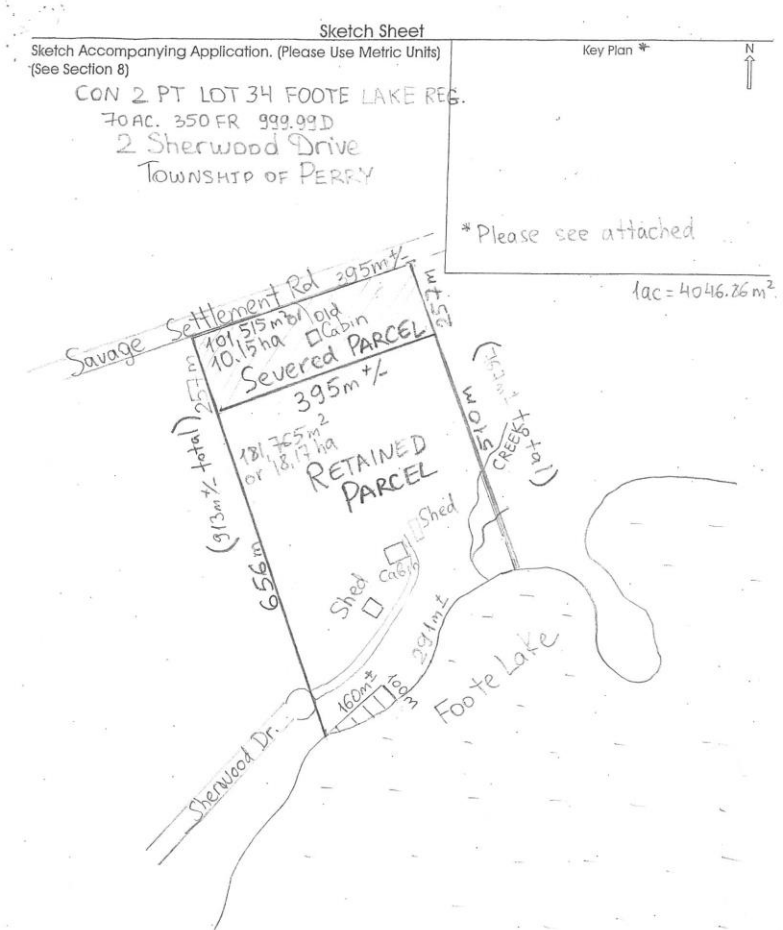 Sketch Sheet
Sketch Accompanying Application. (Please Use Metric Units)
(See Section 8)
Key Plan *
N
CON 2 PT LOT 34 FOOTE LAKE REG.
70 AC. 350 FR 999.99 D
2 Sherwood Drive
TOWNSHIP OF PERRY
*Please see attached
1ac = 4046.26 m²
Savage Settlement Rd 395m+/-
101,515 m² or
10.15 ha
old
Cabin
Severed PARCEL
257 m
257 m
395m+/-
(913m+/- total)
656m
181,765 m²
or 18.17 ha
RETAINED
PARCEL
510m
(767m± total)
CREEK
Shed
Cabin
Shed
291m±
160m±
100m
Foote Lake
Sherwood Dr.